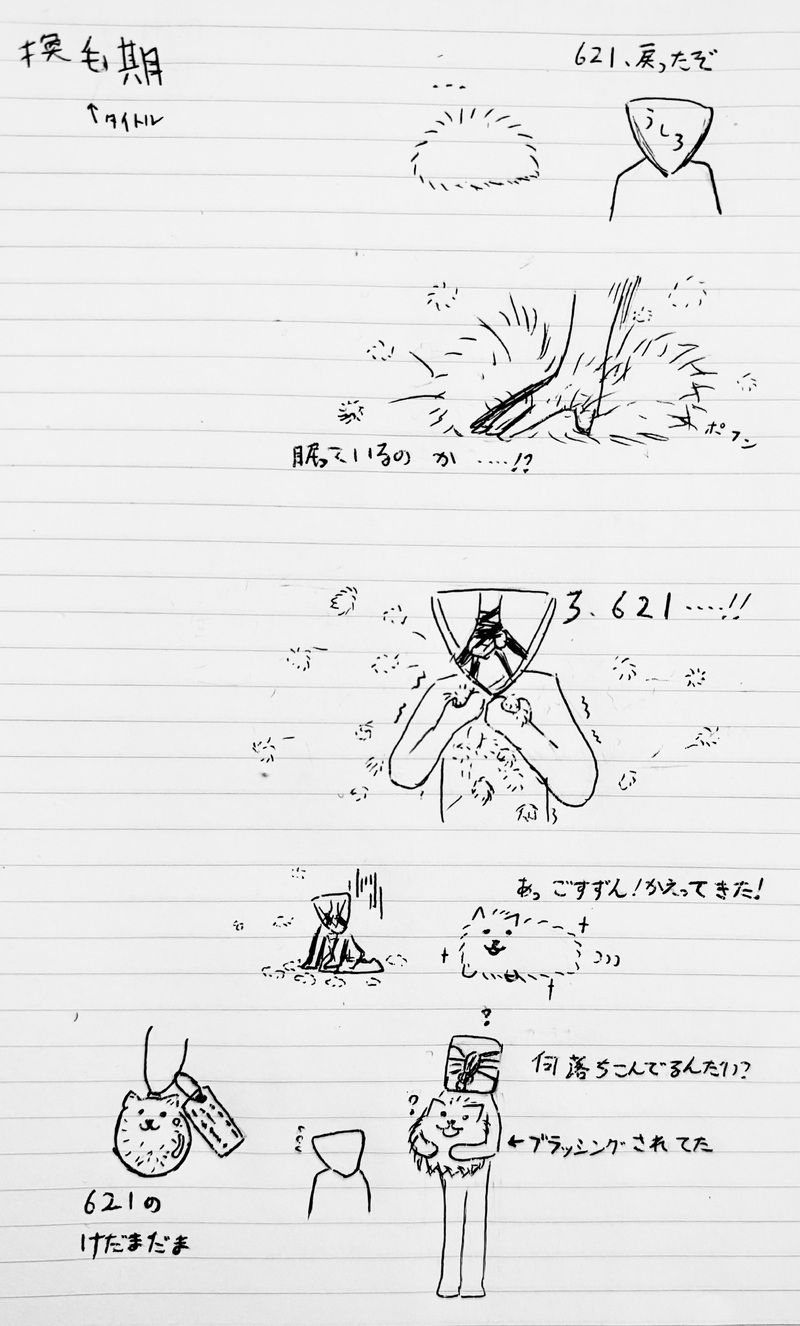 換毛期
↑タイトル
621、戻ったぞ
・・・
うしろ
ポフン
眠っているのか……!?
ろ、621……!!
あっごすずん!かえってきた!
?
何落ちこんでるんだい?
?
←ブラッシングされてた
621の
けだまだま